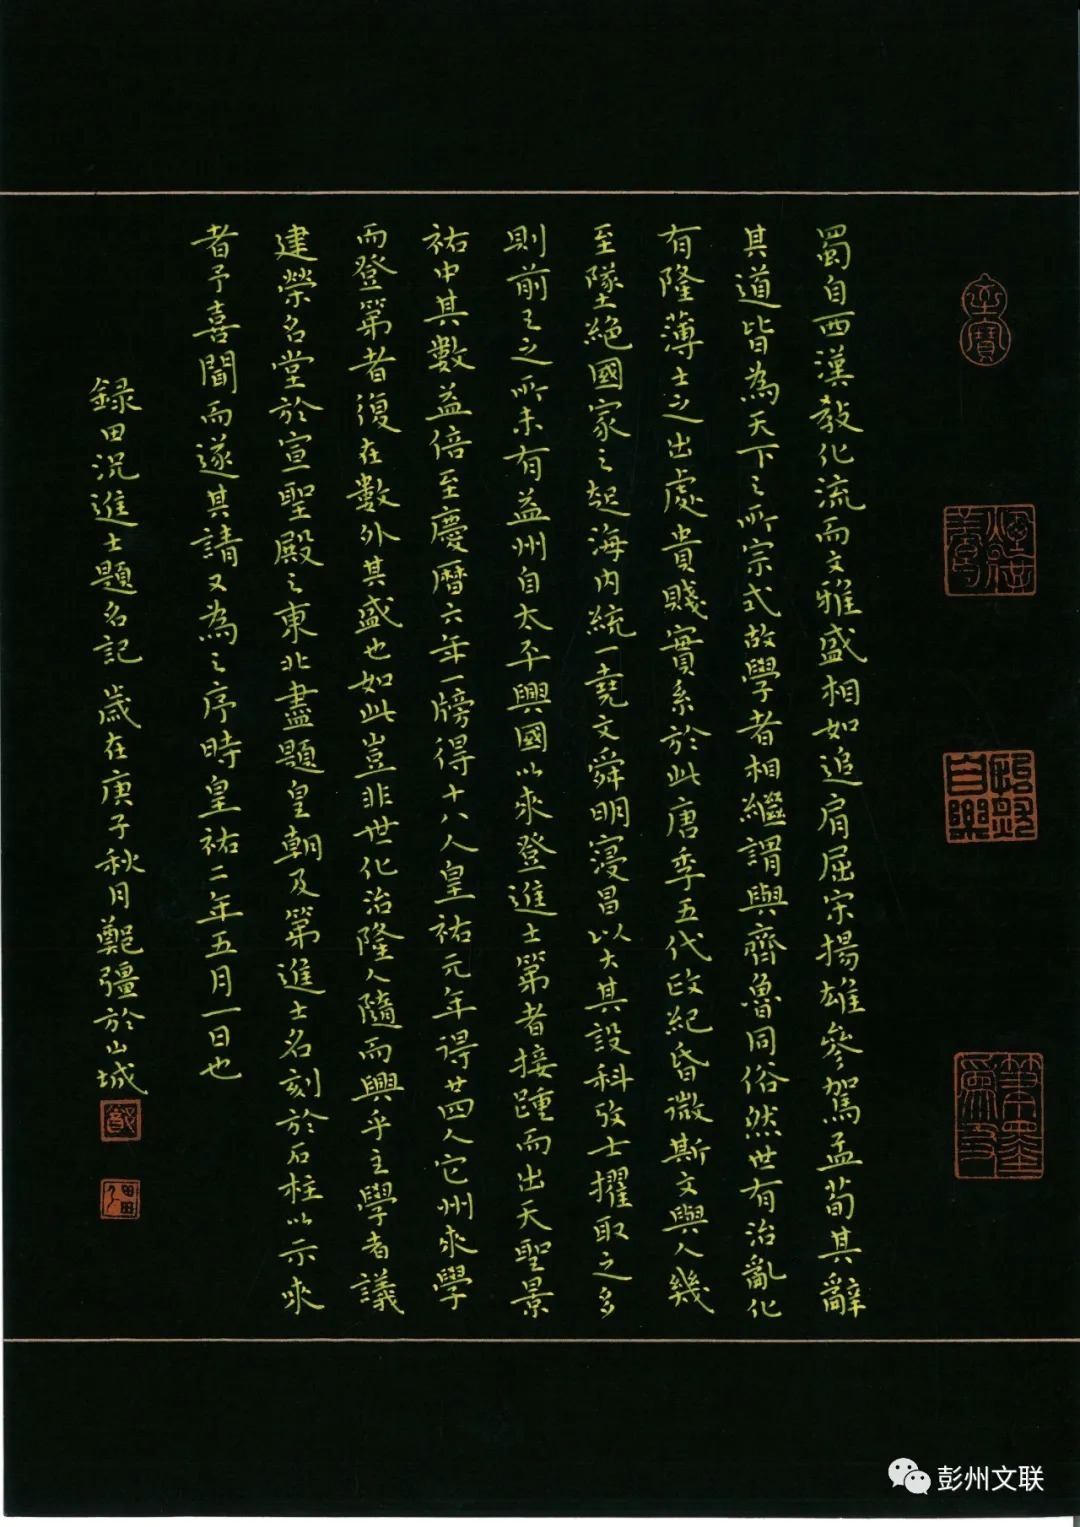 蜀自西漢教化流而文雅盛相如追肩屈宋揚雄參駕孟荀其辭
其道皆為天下之所宗式故學者相繼謂與齊魯同俗然世有治亂化
有隆薄士之出處貴賤實系於此唐季五代政紀昏微斯文與人幾
至墜絕國家之起海内統一堯文舜明寖昌以大其設科攷士擢取之多
則前王之所未有益州自太平興國以來登進士第者接踵而出天聖景
祐中其數益倍至慶曆六年一牓得十八人皇祐元年得廿四人它州來學
而登第者復在數外其盛也如此豈非世化治隆人隨而興乎主學者議
建榮名堂於宣聖殿之東北盡題皇朝及第進士名刻於石柱以示來
者予喜聞而遂其請又為之序時皇祐二年五月一日也
錄田況進士題名記 歲在庚子秋月鄭彊於山城
彭州文联